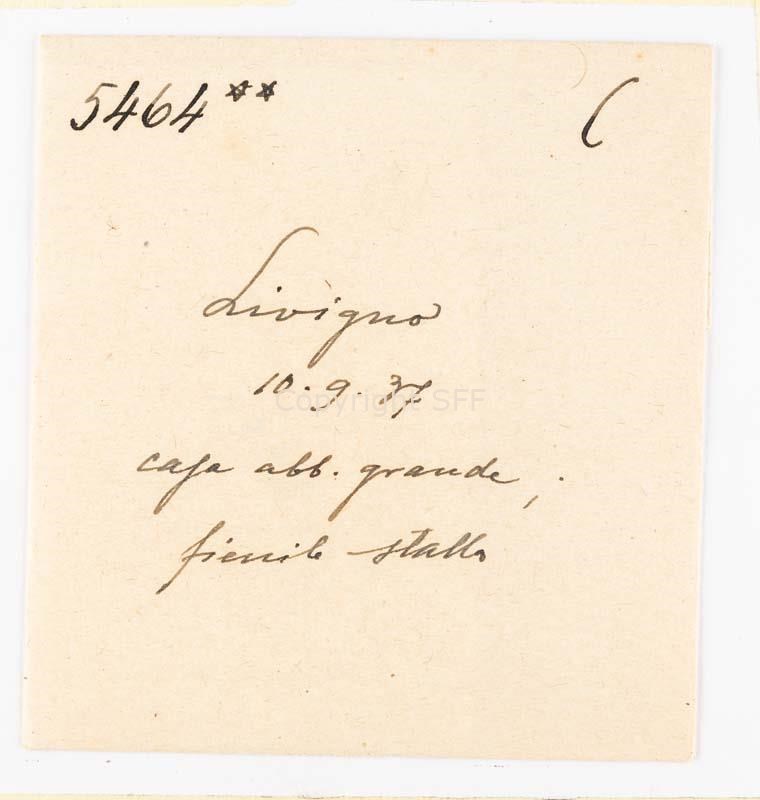 5464** (
Livigno
10.9.37
Copyright SFF
casa abb. grande;
fienile stalla